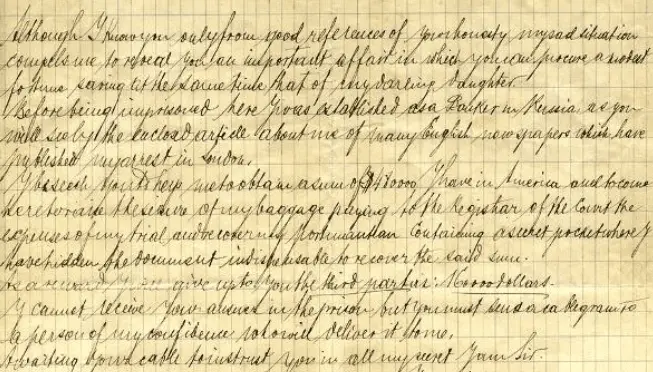 Although I know you only from good references of your honesty my sad situation
compels me to reveal you an important affair in which you can procure a modest
fortune saving at the same time that of my darling daughter.
Before being imprisoned here I was established as a Banker in Russia as you
will see by the enclosed article about me of many English newspapers which have
published my arrest in London.
I beseech you to help me to obtain a sum of $480000 I have in America and to come
here to raise the seizure of my baggage paying to the Registrar of the Court the
expenses of my trial and recover my portmanteau containing a secret pocket where I
have hidden the document indispensable to recover the said sum.
As a reward I give up to you the third part
I cannot receive your answer in the prison but you must send a cablegram to
a person of my confidence who will deliver it to me.
Awaiting your cable to instruct you in all my secret I am Sir.